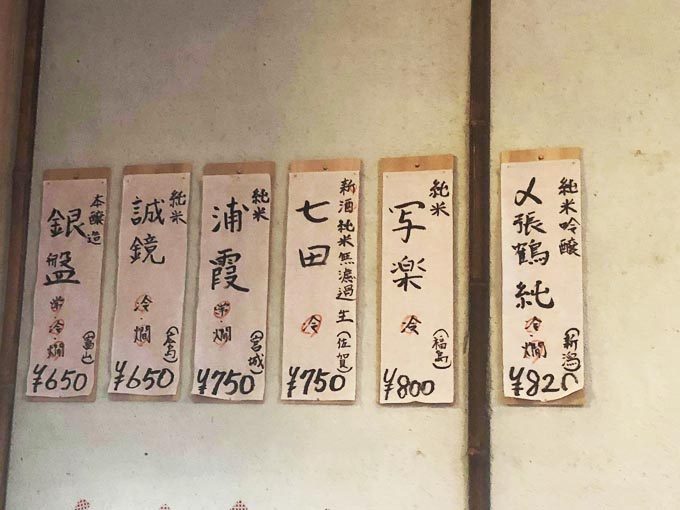 純米吟醸
〆張鶴 純
冷・燗
(新潟)
¥820
純米
写楽
冷
(福島)
¥800
新酒 純米無濾過生
七田
冷
(佐賀)
¥750
純米
浦霞
常・燗
(宮城)
¥750
純米
誠鏡
冷・燗
(広島)
¥650
本醸造
銀盤
常・冷・燗
(富山)
¥650